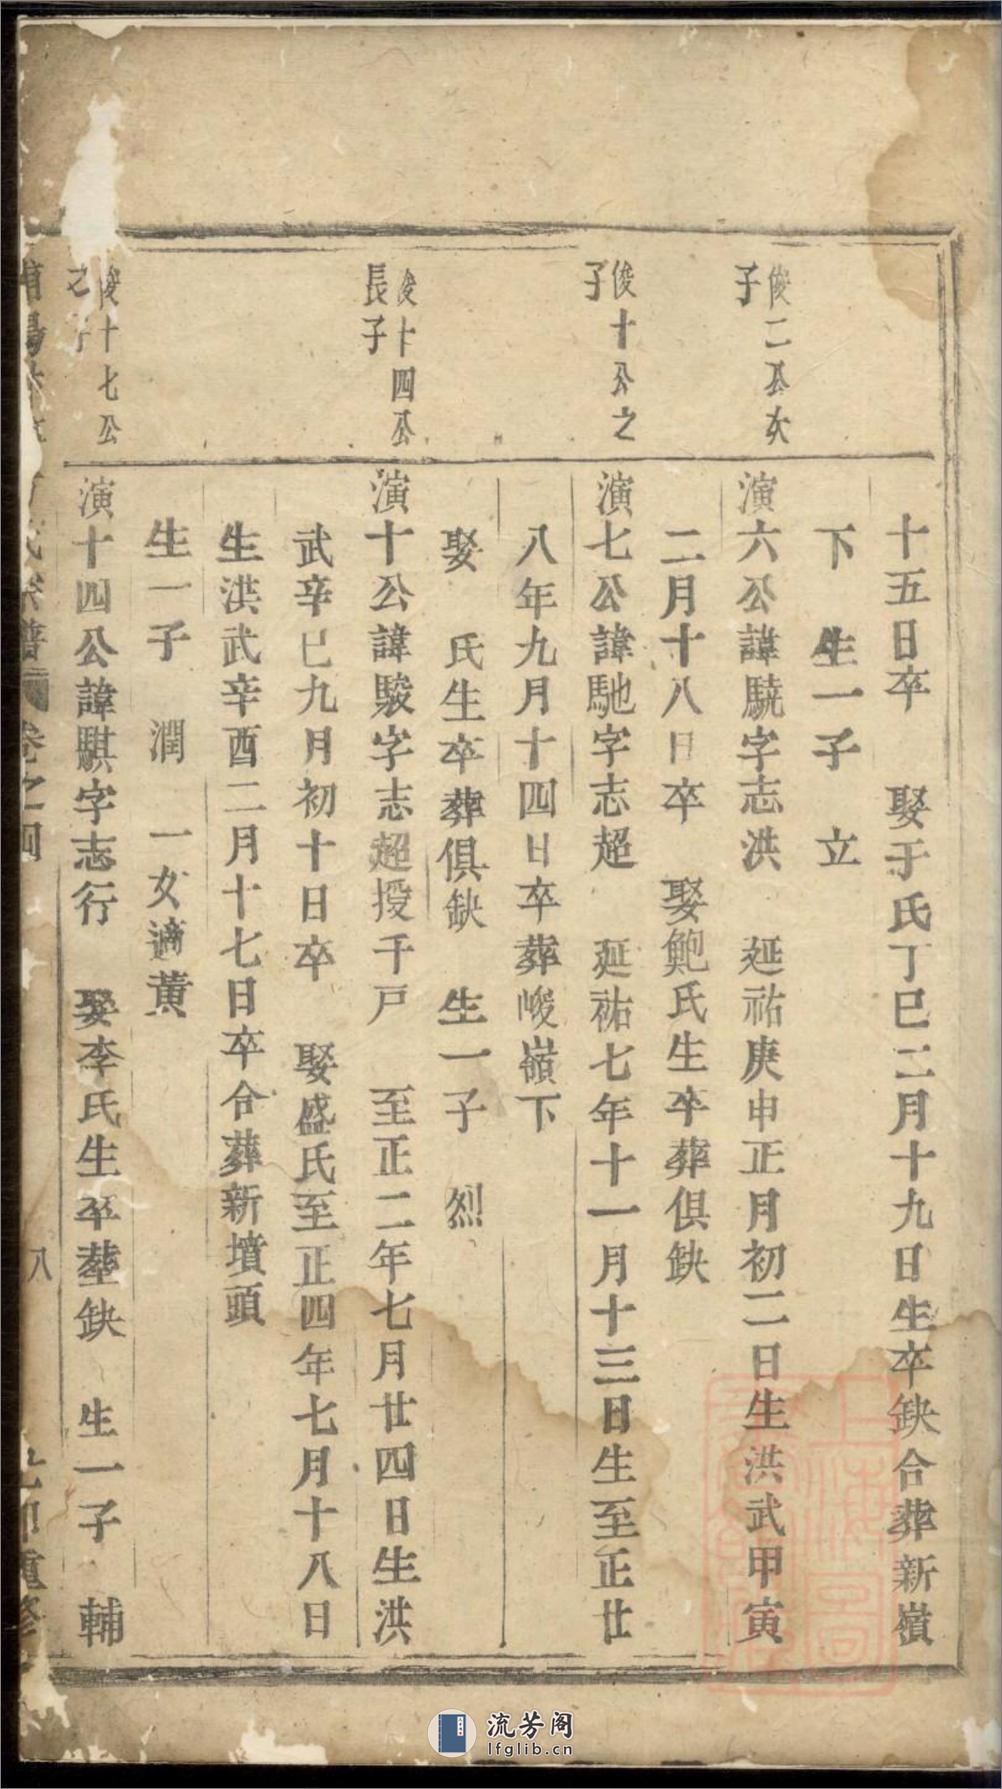 十五日卒　娶于氏丁巳二月十九日生卒缺合葬新嶺
下　生一子　立
俊二公次
子
演六公諱驍字志洪　延祐庚申正月初二日生洪武甲寅
二月十八日卒　娶鮑氏生卒葬俱缺
俊十公之
子
演七公諱馳字志超　延祐七年十一月十三日生至正廿
八年九月十四日卒葬峻嶺下
娶　氏生卒葬俱缺　生一子　烈
俊十四公
長子
演十公諱駿字志超授千戸　至正二年七月廿四日生洪
武辛巳九月初十日卒　娶盛氏至正四年七月十八日
生洪武辛酉二月十七日卒合葬新墳頭
生一子　潤　一女適黄
俊十七公
之子
演十四公諱騏字志行　娶李氏生卒塟缺　生一子　輔
氏宗譜　卷之四　八　重修
流芳阁
lfglib.cn